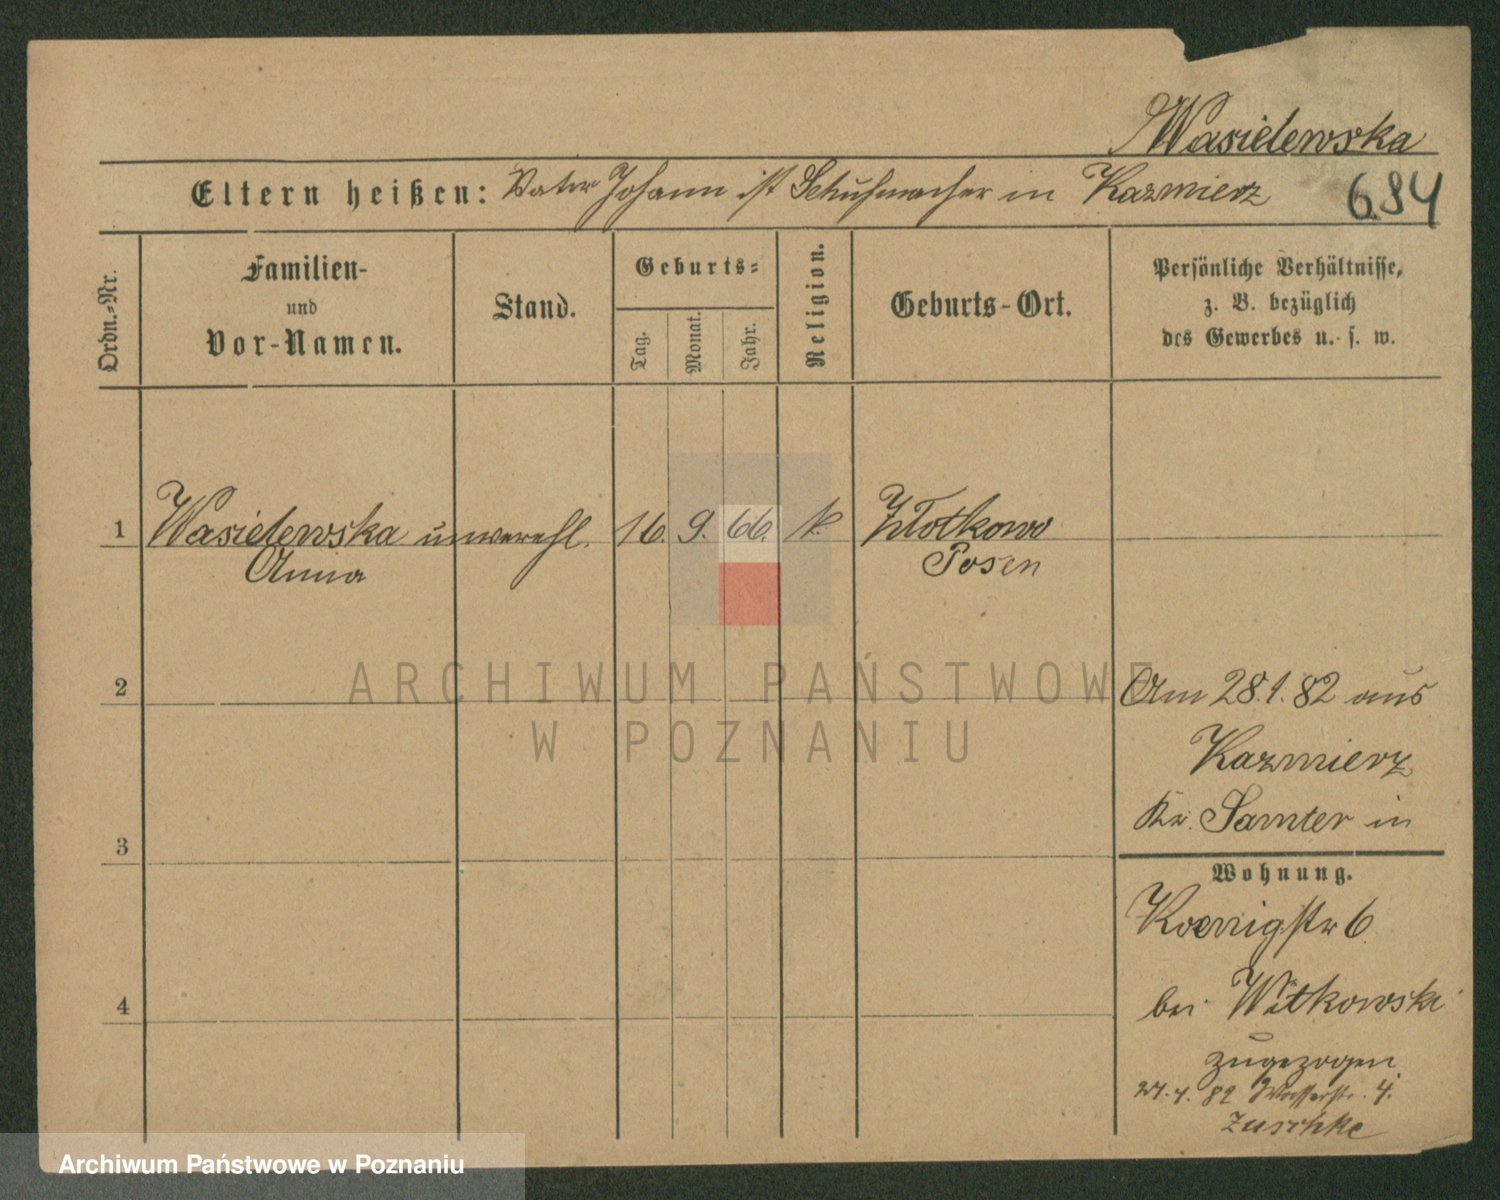 Wasielewska
Eltern heißen: Vater Johann ist Schuhmacher in Kazmierz
684
Ordn.-Nr.
Familien- und Vor-Namen.
Stand.
Geburts-
Tag.
Monat.
Jahr.
Religion.
Geburts-Ort.
Persönliche Verhältnisse,
z. B. bezüglich
des Gewerbes u. s. w.
1 Wasielewska unverehl. 16. 9. 66. k. Złotkowo
Anna Posen
2
Am 28.1.82 aus
Kazmierz
3
Kr. Samter in
Wohnung.
Koenigstr 6
4
bei Witkowski
zugezogen
82 Wasserstr. 4.
Zuschke
ARCHIWUM PAŃSTWOWE
W POZNANIU
Archiwum Państwowe w Poznaniu